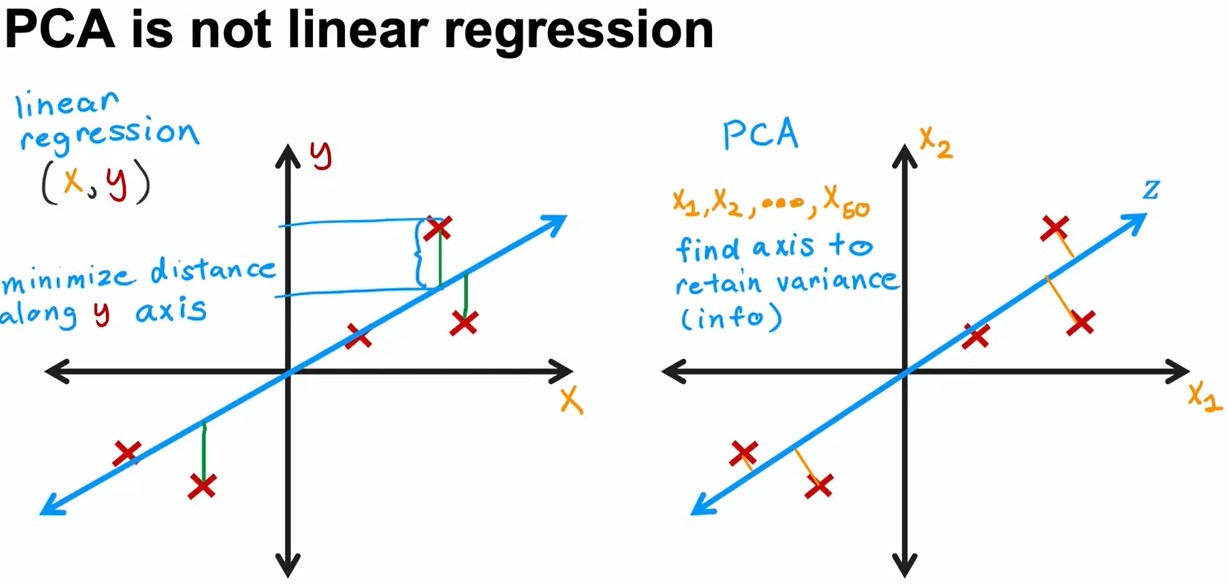 PCA is not linear regression
linear
regression
(x, y)
y
minimize distance
along y axis
x
PCA
x₁, x₂, ..., x₅₀
find axis to
retain variance
(info)
x₂
z
x₁